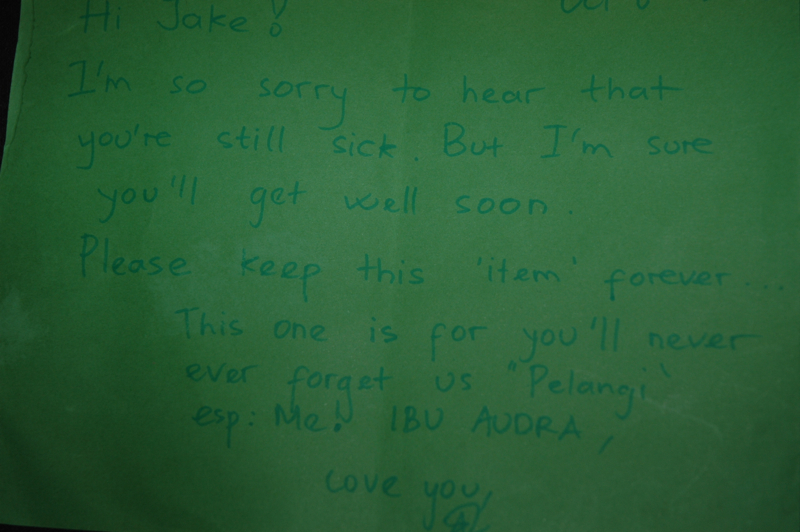 Hi Jake!
I'm so sorry to hear that
you're still sick. But I'm sure
you'll get well soon.
Please keep this 'item' forever...
This one is for you'll never
ever forget us "Pelangi"
esp: Me! IBU AUDRA,
Love you,